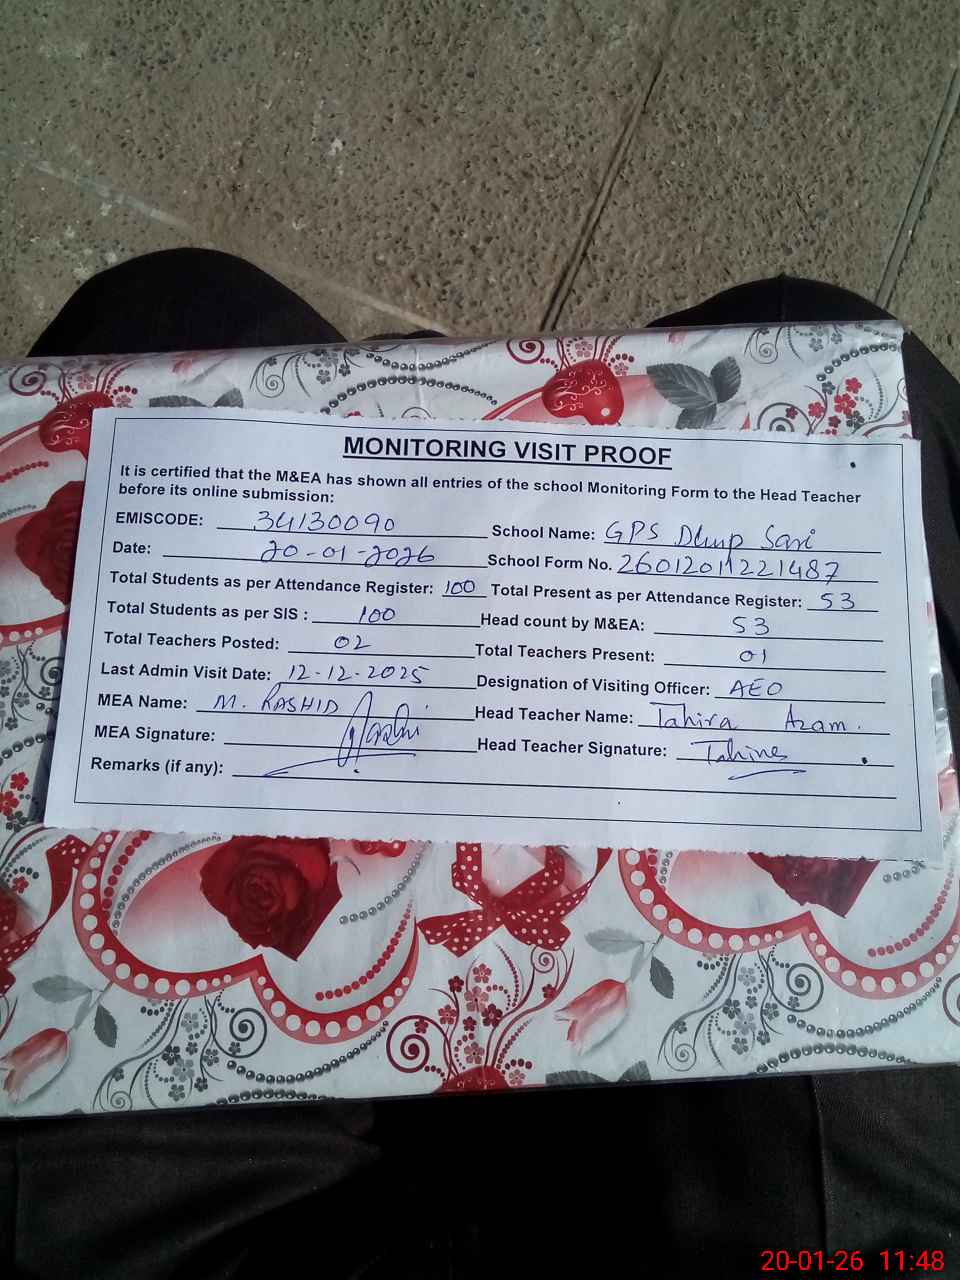 MONITORING VISIT PROOF
It is certified that the M&EA has shown all entries of the school Monitoring Form to the Head Teacher
before its online submission:
EMISCODE: 34130090 School Name: GPS Dhup Sari
Date: 20-01-2026 School Form No. 26012011221487
Total Students as per Attendance Register: 100 Total Present as per Attendance Register: 53
Total Students as per SIS : 100 Head count by M&EA: 53
Total Teachers Posted: 02 Total Teachers Present: 01
Last Admin Visit Date: 12-12-2025 Designation of Visiting Officer: AEO
MEA Name: M. RASHID Head Teacher Name: Tahira Azam.
MEA Signature: Head Teacher Signature:
Remarks (if any):
20-01-26 11:48